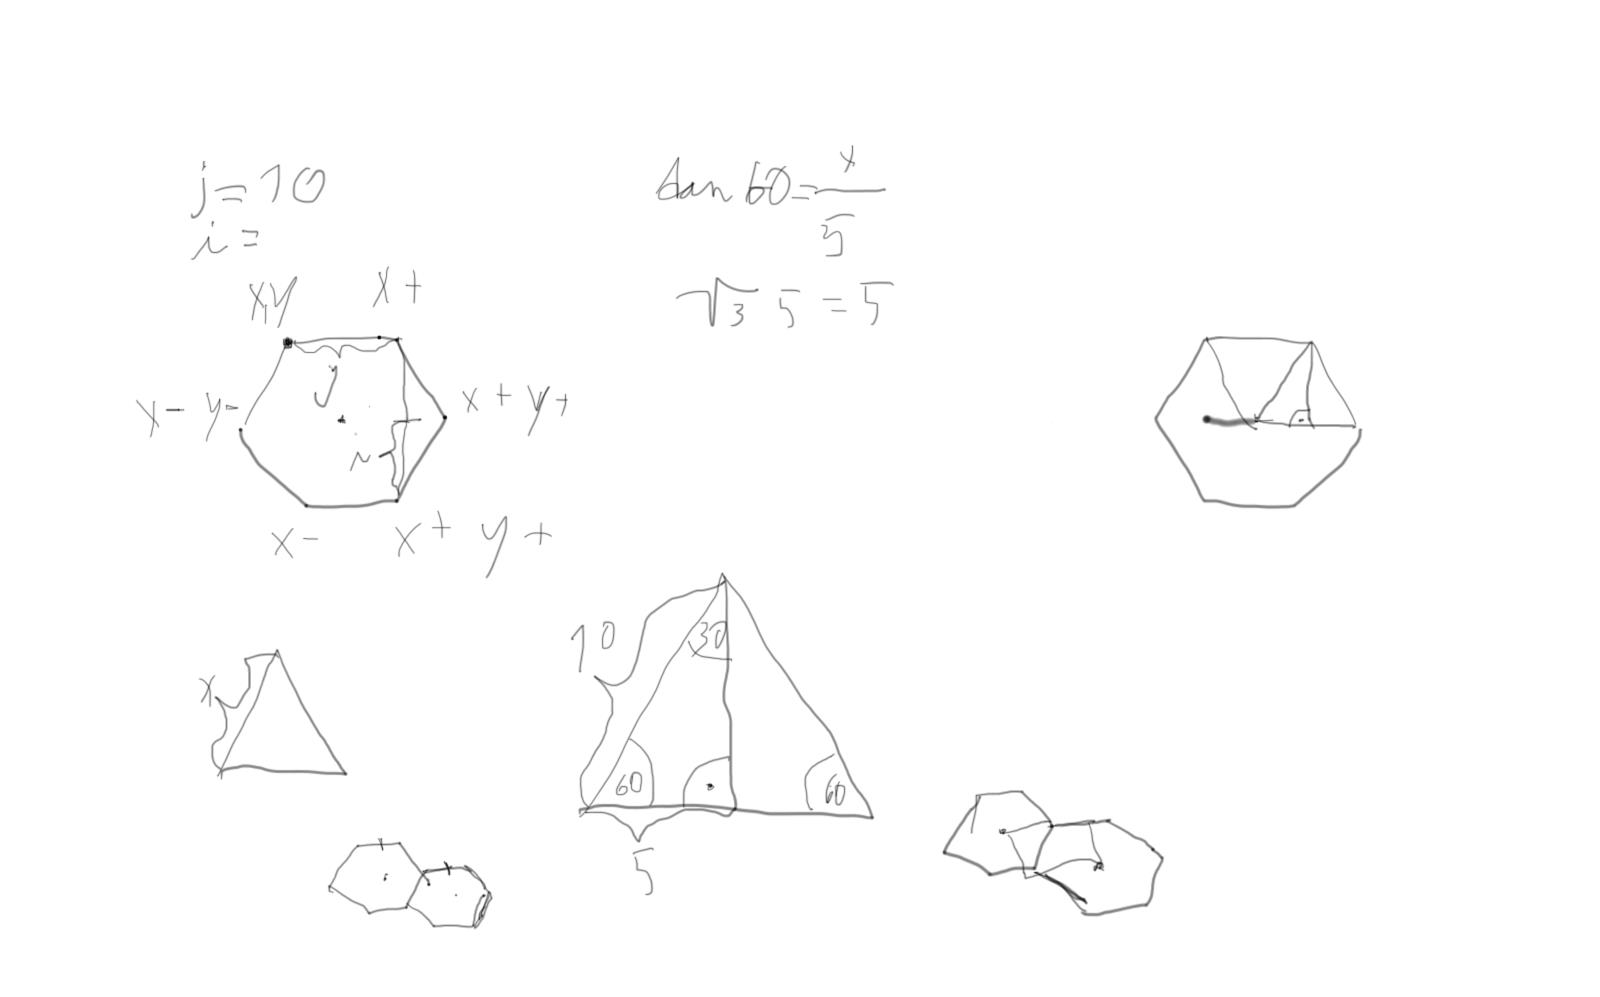 j=10
i=
tan 60 = x
5
√3 5 = 5
x,y
x+
j
x- y-
x+ y+
i
x-
x+ y+
x
10
30
60
60
5